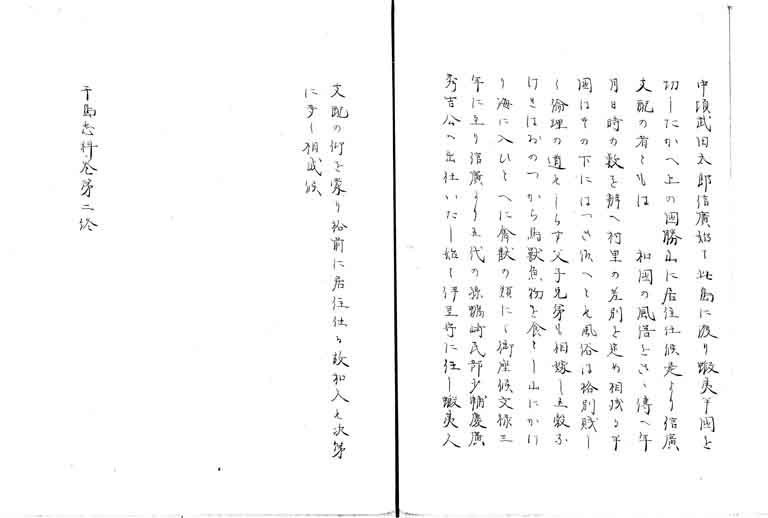 中頃武田太郎信廣始て此島に渡り蝦夷平國を
切したかへ上の國勝山に居住仕候是より信廣
支配の者ともは 和國の風儀をさゝ傳へ年
月日時の数を辨へ村里の差別を定め相残る平
國はその下にはつき候へとも風俗は格別賎し
く倫理の道をしらす父子兄弟も相嫁し五穀ふ
けきはおのつから鳥獣魚物を食とし山にかけ
り海に入ひとへに禽獣の類にて御座候文禄三
年に至り信廣より五代の孫蠣崎民部少輔慶廣
秀吉公へ出仕いたし始て伊豆守に任し蝦夷人
支配の御を蒙り松前に居住仕る故和人も次第
に多く相成候
千島志料巻第二終